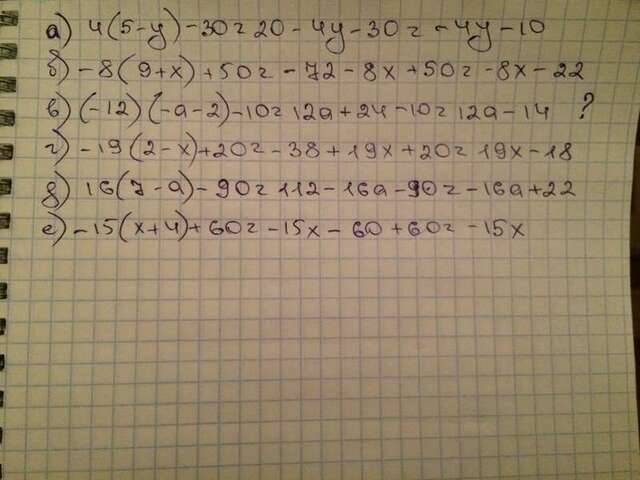 а) 4(5-y)-30=20-4y-30=-4y-10
б) -8(9+x)+50=-72-8x+50=-8x-22
в) (-12)(-a-2)-10=12a+24-10=12a-14 ?
г) -19(2-x)+20=-38+19x+20=19x-18
д) 16(7-a)-90=112-16a-90=-16a+22
е) -15(x+4)+60=-15x-60+60=-15x